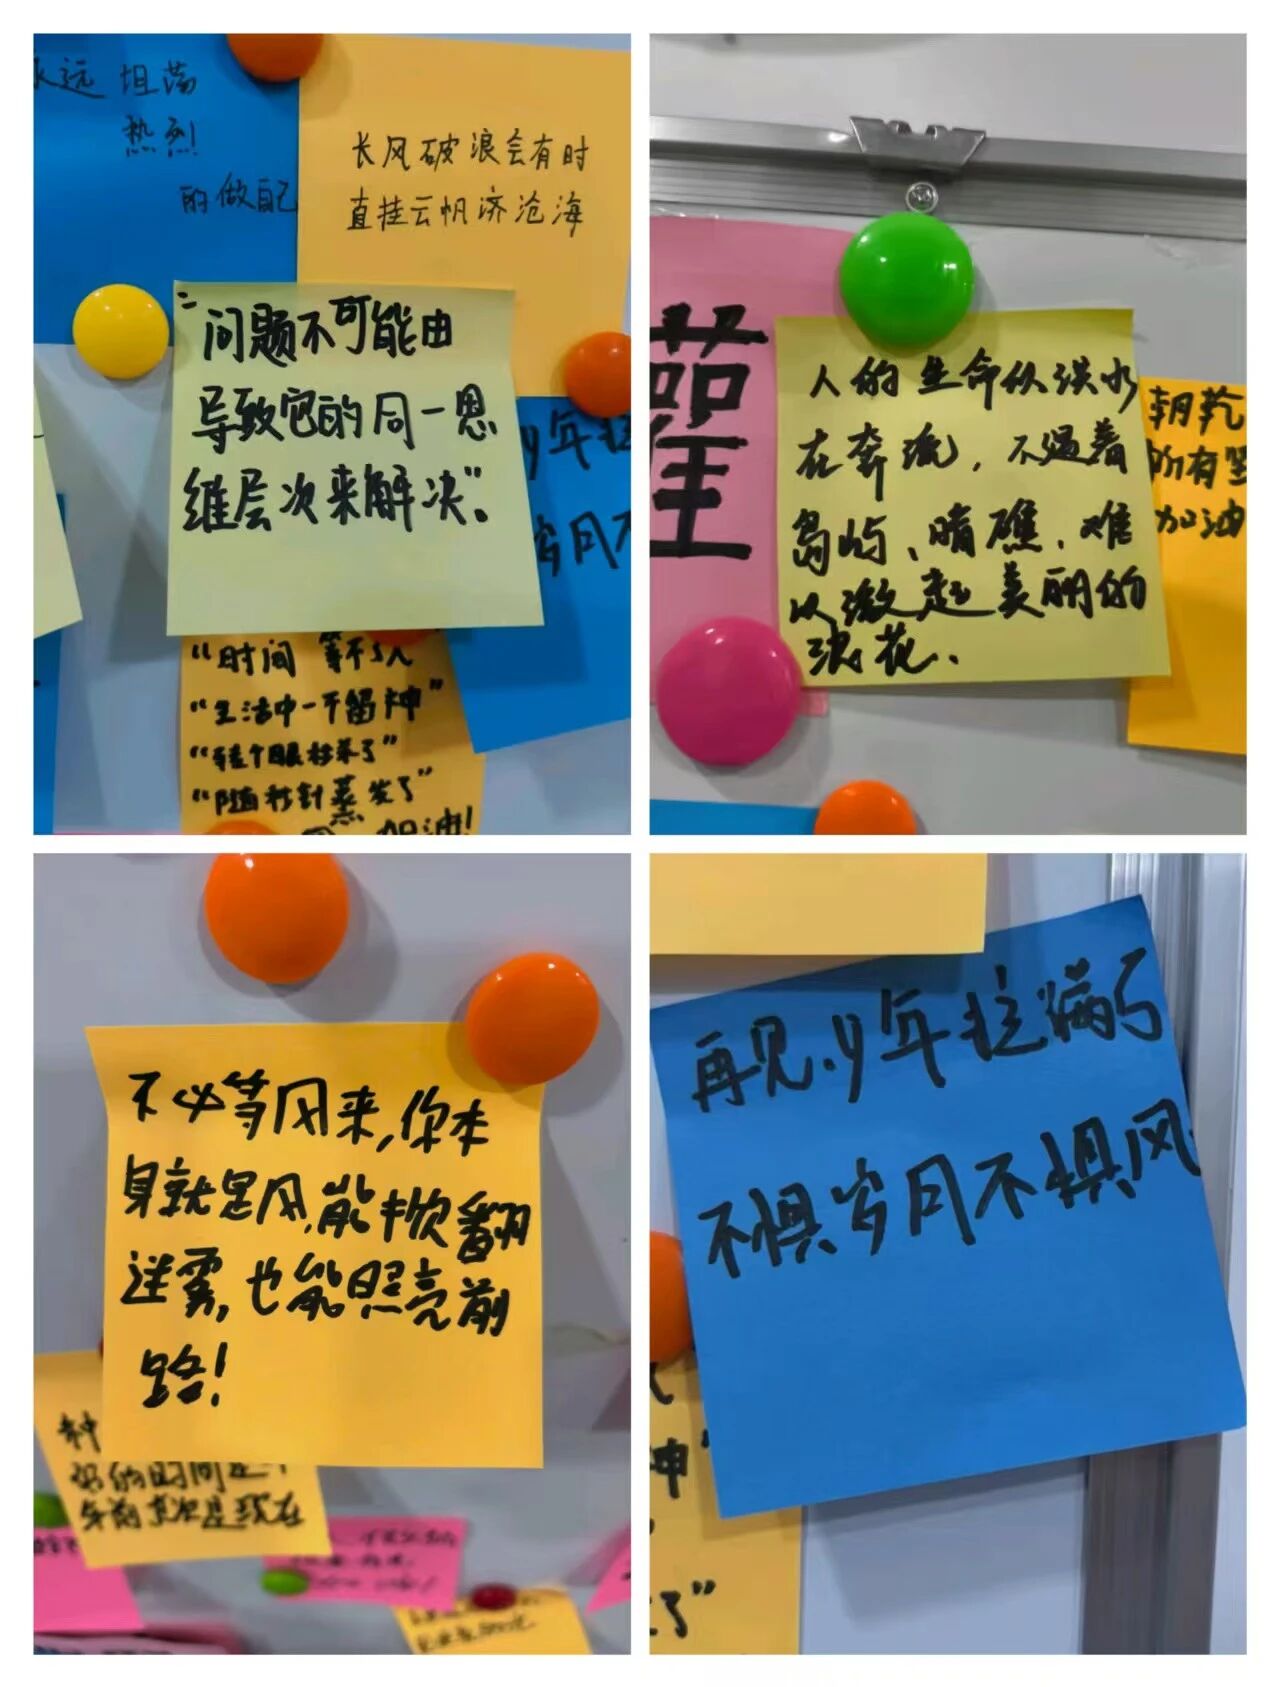 永远 坦荡
热烈
的做自己
长风破浪会有时
直挂云帆济沧海
"问题不可能由
导致它的同一思
维层次来解决"。
少年
岁月不
"时间 等不了人
"生活中一不留神"
"转个眼秒蒸了"
"随秒针蒸发了"
加油!
人的生命似洪水
在奔流，不遇着
岛屿、暗礁，难
以激起美丽的
浪花.
朝乾
所有坚
加油
不必等风来,你本
身就是风,能吹翻
迷雾,也能照亮前
路!
种
好的时间是十
年前其次是现在
再见.少年拉满弓
不惧岁月不惧风.
神"
了"